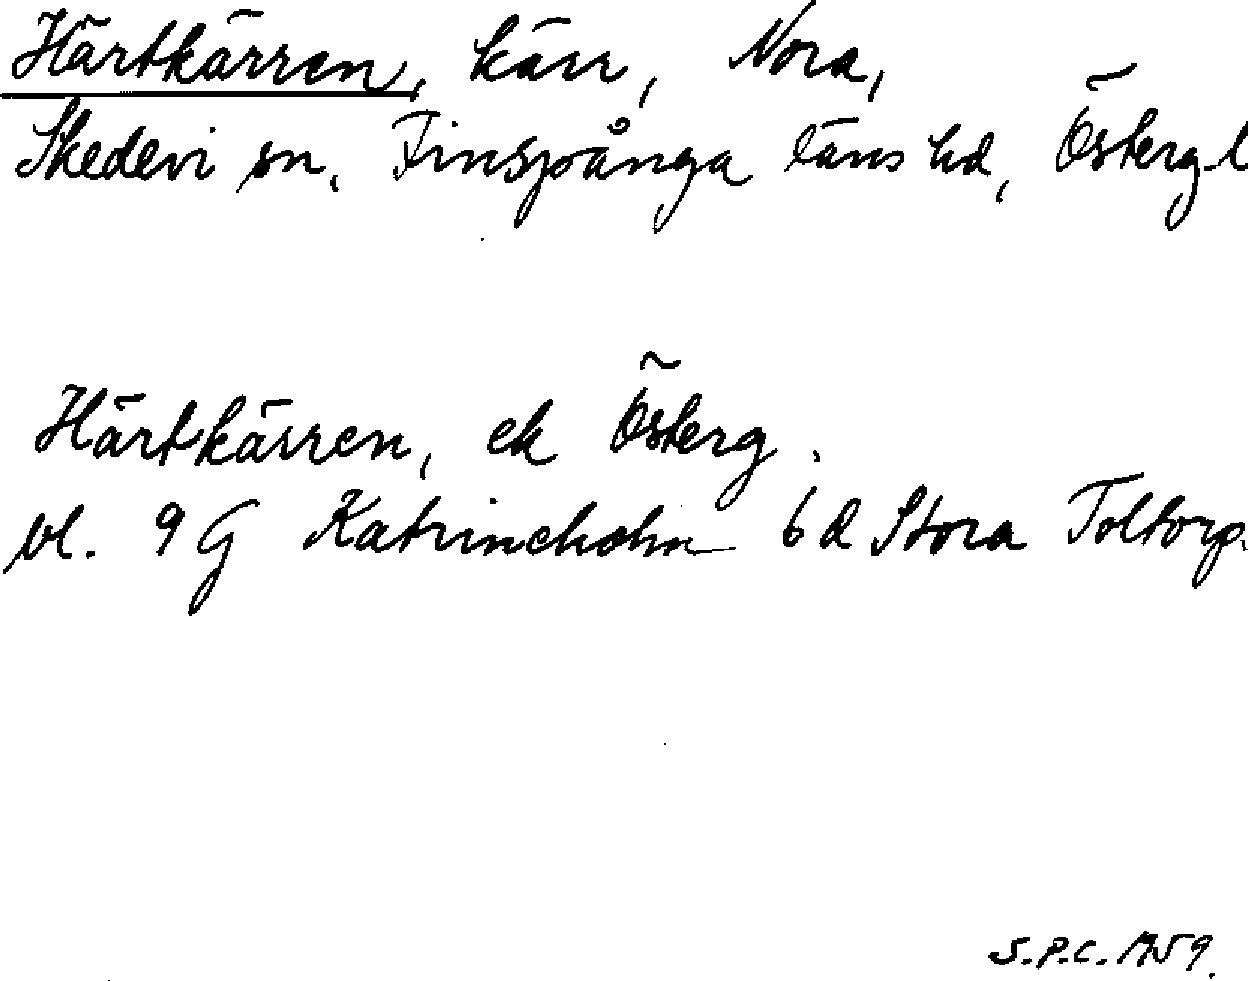 Härtkärren, kärr, Nora,
Skedevi sn, Finspånga läns hd, Östergl
Härtkärren, ek Österg.
bl. 9 G Katrineholm 6 d Stora Toltorp.
S.P.C. 1959.